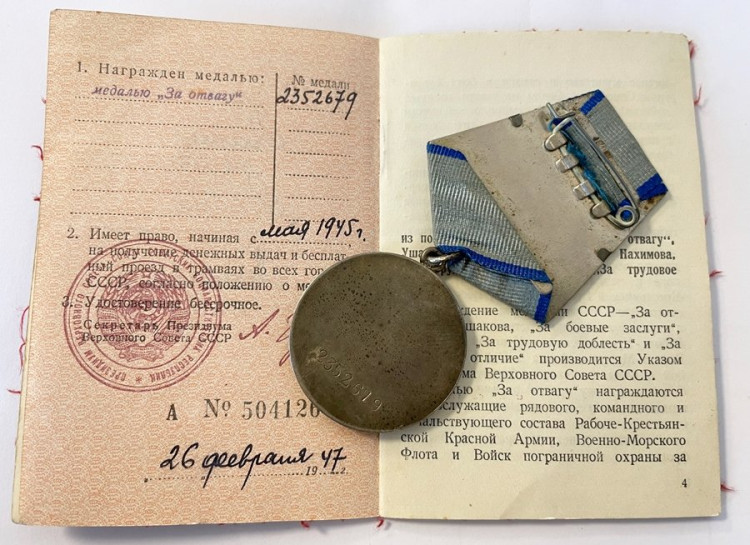 1. Награжден медалью:
№ медали
медалью „За отвагу“
2352679
2. Имеет право, начиная с мая 1945 г.
на получение денежных выдач и бесплат-
ный проезд в трамваях во всех гор
СССР, согласно положению о м
3. Удостоверение бессрочное.
Секретарь Президиума
Верховного Совета СССР
А № 504126
26 февраля 1947 г.
2352679
из по отвагу“,
Уша Нахимова,
За трудовое
ждение медалями СССР—„За от-
ушакова, „За боевые заслуги“,
„За трудовую доблесть“ и „За
отличие“ производится Указом
ма Верховного Совета СССР.
ью „За отвагу“ награждаются
служащие рядового, командного и
чальствующего состава Рабоче-Крестьян-
ской Красной Армии, Военно-Морского
Флота и Войск пограничной охраны за
4